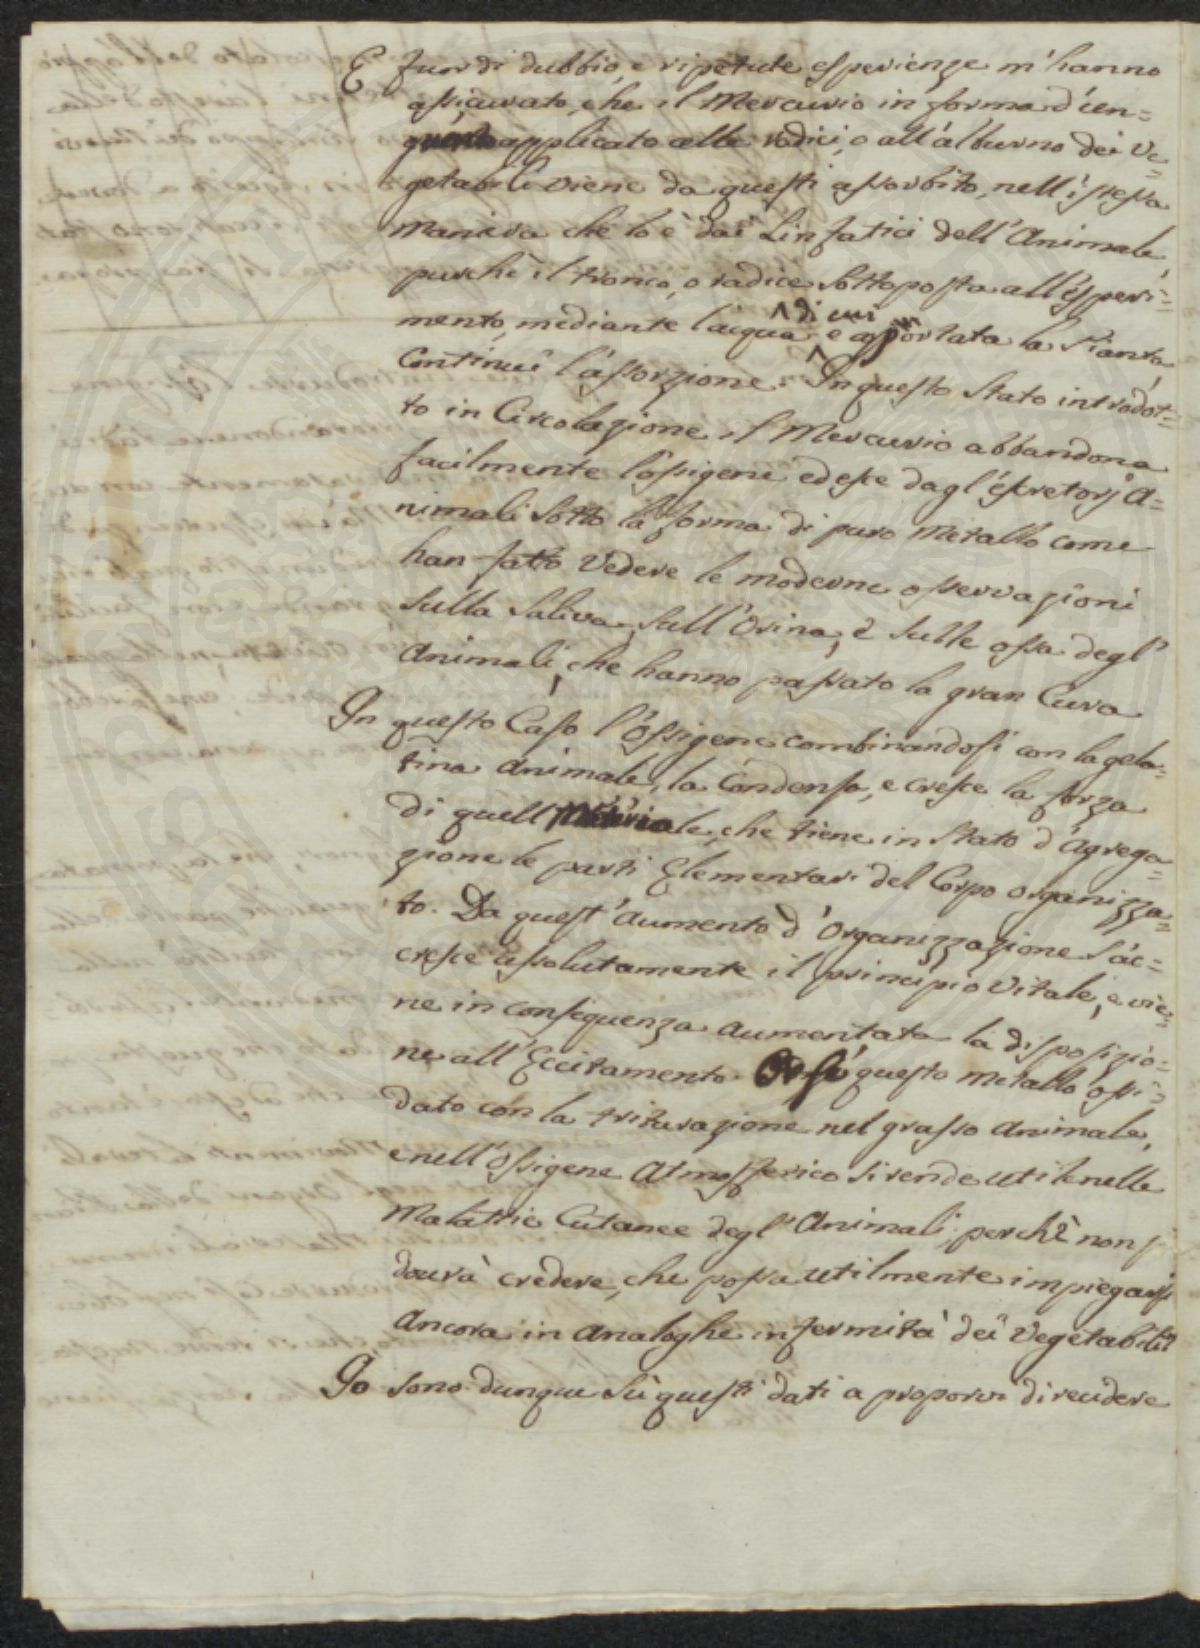 E fuor di dubbio, e ripetute esperienze m'hanno
assicurato, che il Mercurio in forma d'un=
guento applicato alle radici, o all'alburno dei Ve=
getabili viene da questi assorbito, nell'istessa
maniera che lo è dai Linfatici dell'Animale,
purchè il tronco, o radice sottoposta all'esperi=
mento, mediante l'acqua di cui è asportata la Pianta,
Continui l'assorzione. In questo Stato introdot=
to in Circolazione il Mercurio abbandona
facilmente l'ossigene ed esce dagl'escretorj A=
nimali sotto la forma di puro Metallo come
han fatto Vedere le moderne osservazioni
sulla Saliva, sull'Orina, e sulle ossa degl'
Animali, che hanno passato la gran Cura
In questo Caso l'Ossigene combinandosi con la gela=
tina Animale, la Condensa, e cresce la forza
di quell che tiene in Stato d'Agrega=
zione le parti Elementari del Corpo organizza=
to. Da quest'Aumento d'Organizzazione s'ac=
cresce assolutamente il principio Vitale, e vie=
ne in conseguenza aumentata la disposizio=
ne all'Eccitamento. questo metallo ossi=
dato con la triturazione nel grasso Animale,
e nell'Ossigene Atmosferico si rende utile nelle
Malattie Cutanee degl'Animali, perchè non si
dovrà credere, che possa utilmente impiegarsi
Ancora in Analoghe infermità dei Vegetabili?
Io sono dunque sù questi dati a proporvi di rendere